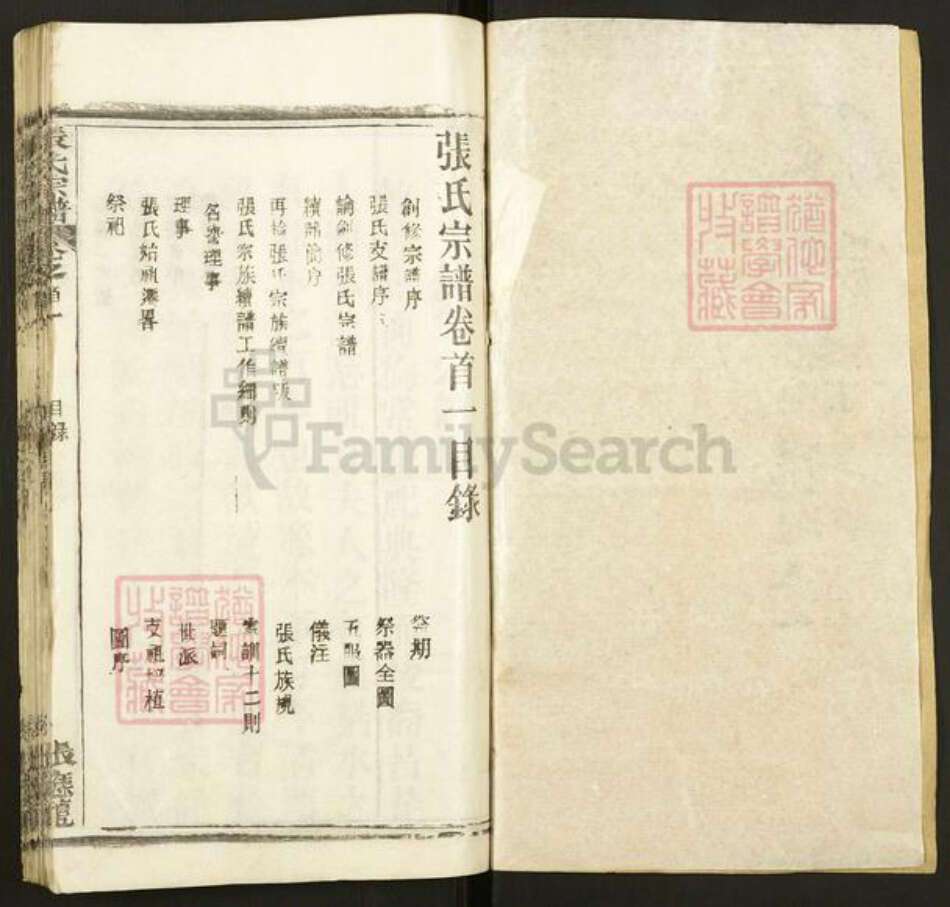 張氏宗譜卷首一目錄
創修宗譜序
張氏支譜序
論創修張氏宗譜
續譜簡序
再修張氏宗族續譜
張氏宗族續譜工作細則
名譽理事
理事
張氏始祖傳畧
祭祀
祭期
祭器全圖
五服圖
儀注
張氏族規
家訓十二則
題詞
世派
支祖
圖序
張氏宗譜
卷之首一
目錄
譜學會
收藏
FamilySearch